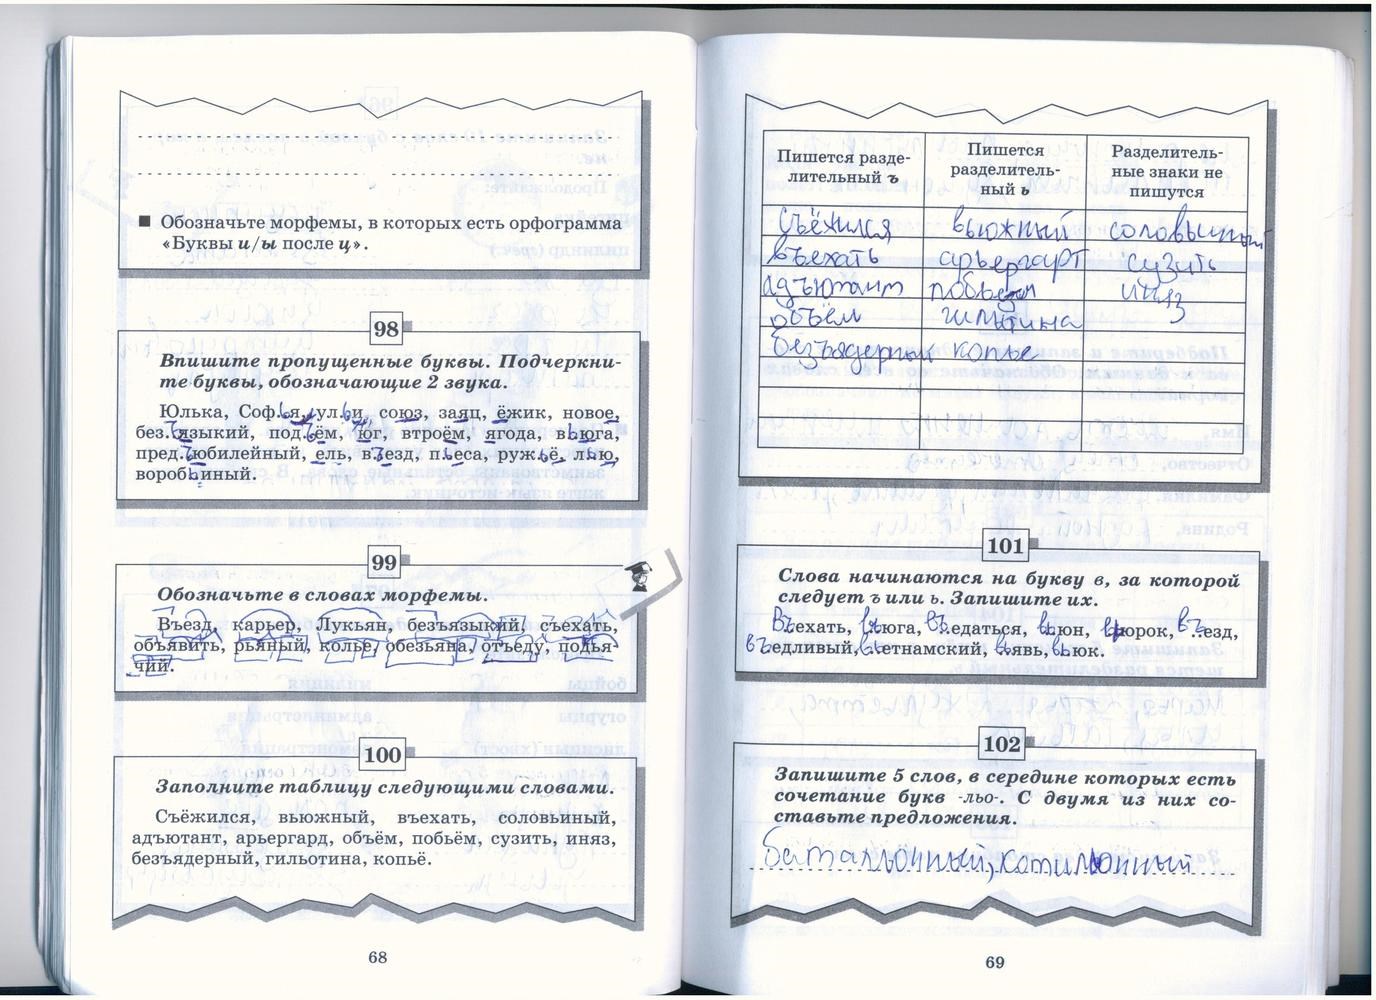 ■ Обозначьте морфемы, в которых есть орфограмма
«Буквы и/ы после ц».
98
Впишите пропущенные буквы. Подчеркни-
те буквы, обозначающие 2 звука.
Юлька, Соф.ья, ул.ьи, союз, заяц, ёжик, новое,
без.ъязыкий, под.ъём, юг, втроём, ягода, вьюга,
пред.ъюбилейный, ель, въезд, пьеса, ружьё, лью,
воробьиный.
99
Обозначьте в словах морфемы.
Въезд, карьер, Лукьян, безъязыкий, съехать,
объявить, рьяный, колье, обезьяна, отъеду, подья
чий.
100
Заполните таблицу следующими словами.
Съёжился, вьюжный, въехать, соловьиный,
адъютант, арьергард, объём, побьём, сузить, иняз,
безъядерный, гильотина, копьё.
68
Пишется разде-
лительный ъ
Пишется
разделитель-
ный ь
Разделитель-
ные знаки не
пишутся
съёжился вьюжный соловьиный
въехать арьергарт сузить
адъютант побьем иняз
объём гильотина
безъядерный копье
101
Слова начинаются на букву в, за которой
следует ъ или ь. Запишите их.
Въехать, вьюга, въ.едаться, вьюн, вьюрок, въ.езд,
въедливый, вьетнамский, въявь, вьюк.
102
Запишите 5 слов, в середине которых есть
сочетание букв -льо-. С двумя из них со-
ставьте предложения.
батальонный, котильонный
69